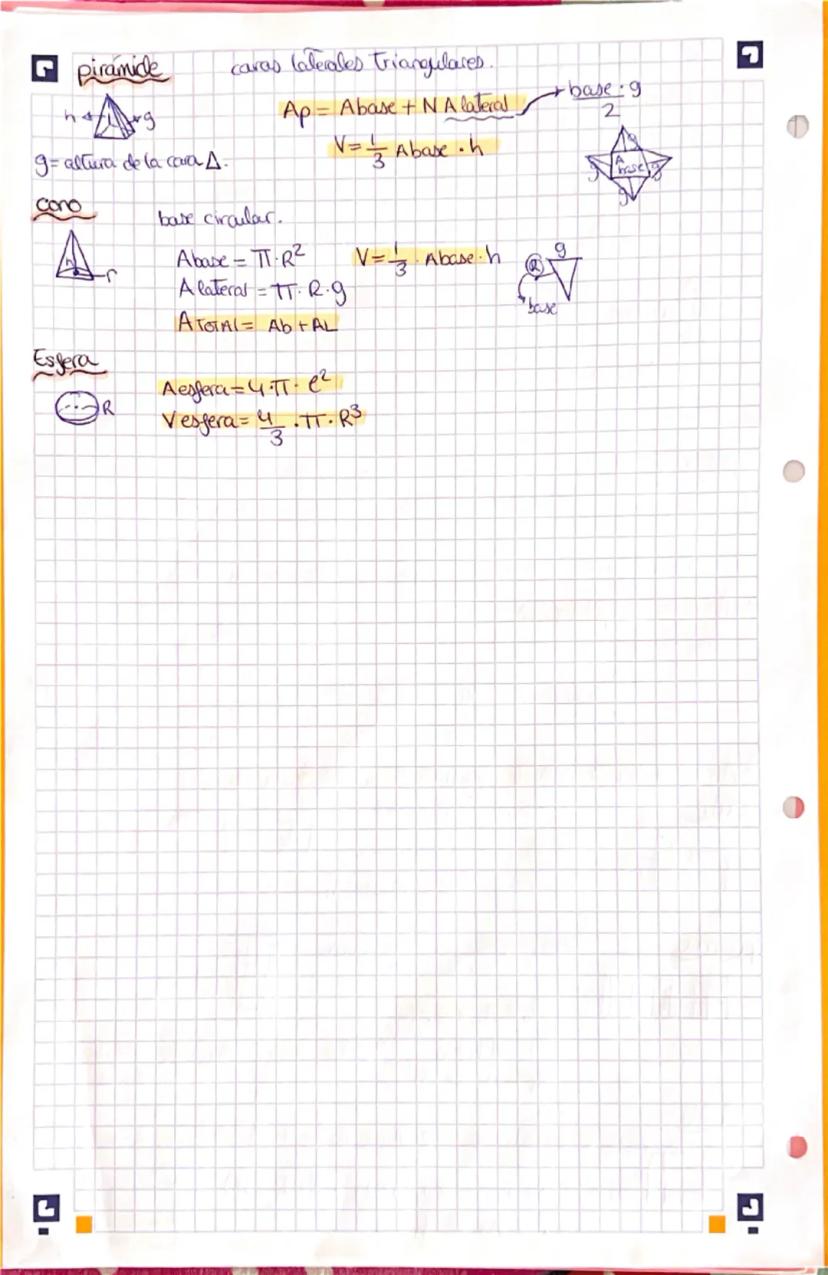 pirámide caras laterales triangulares.
h g Ap = Abase + N Alateral base · g / 2
V = 1/3 Abase · h
g = altura de la cara Δ.
g A base g g g
cono
base circular.
h r
Abase = π · R² V = 1/3 · Abase · h g R
Alateral = π · R · g base
ATOTAL = Ab + AL
Esfera
R Aesfera = 4 · π · e²
Vesfera = 4/3 · π · R³